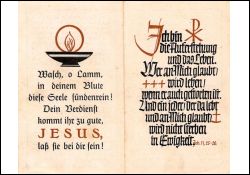 Wasch, o Lamm,
in deinem Blute
diese Seele sündenrein!
Dein Verdienst
kommt ihr zu gute,
JESUS,
laß sie bei dir sein!
Ich bin
die Auferstehung
und das Leben.
Wer an Mich glaubt,
wird leben
wenn er auch gestorben ist.
Und ein jeder, der da lebt
und an Mich glaubt
wird nicht sterben
in Ewigkeit.
Joh. 11, 25-26.